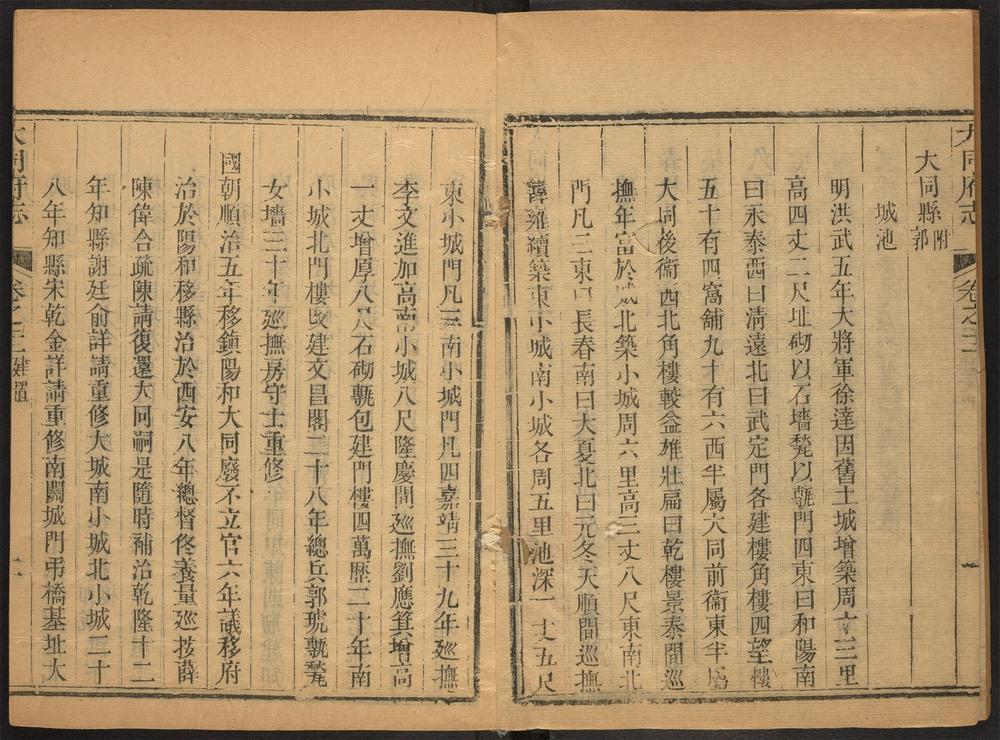 大同府志
卷之
大同縣附郭
城池
明洪武五年大將軍徐達因舊土城增築周十三里
高四丈二尺址砌以石墻甃以甎門四東曰和陽南
曰永泰西曰清遠北曰武定門各建樓角樓四望樓
五十有四窩舖九十有六西半屬大同前衞東半屬
大同後衞西北角樓較益雄壯扁曰乾樓景泰間巡
撫年富於城北築小城周六里高三丈八尺東南北
門凡三東曰長春南曰大夏北曰元冬天順間巡撫
韓雍續築東小城南小城各周五里池深一丈五尺
東小城門凡三南小城門凡四嘉靖三十九年巡撫
李文進加高南小城八尺隆慶間巡撫劉應箕增高
一丈增厚八尺石砌甎包建門樓四萬歷二十年南
小城北門樓改建文昌閣二十八年總兵郭琥甎甃
女墻三十年巡撫房守士重修
國朝順治五年移鎮陽和大同廢不立官六年議移府
治於陽和移縣治於西安八年總督佟養量巡按薛
陳偉合疏陳請復還大同嗣是隨時補治乾隆十二
年知縣謝廷俞詳請重修大城南小城北小城二十
八年知縣宋乾金詳請重修南關城門弔橋墓址大
大同府志
卷之
建置